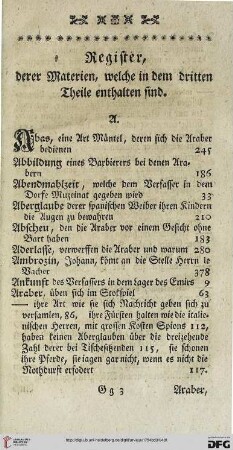 Register,
derer Materien, welche in dem dritten
Theile enthalten sind.
A.
Abas, eine Art Mäntel, deren sich die Araber
bedienen 245
Abbildung eines Barbierers bei denen Ara-
bern 186
Abendmahlzeit, welche dem Verfasser in dem
Dorfe Muzeinat gegeben wird 33
Aberglaube derer spanischen Weiber ihren Kindern
die Augen zu bewahren 210
Abscheu, den die Araber vor einem Gesicht ohne
Bart haben 183
Aderlasse, verwerffen die Araber und warum 280
Ambrozin, Johann, kömt an die Stelle Herrn le
Vacher 378
Ankunft des Verfassers in dem Lager des Emirs 9
Araber, üben sich im Stokspiel 63
—— ihre Art wie sie sich Nachricht geben sich zu
versamlen, 86, ihre Fürsten halten wie die italie-
nischen Herren, mit grossen Kosten Spions 112,
haben keinen Aberglauben über die dreizehende
Zahl derer bei Tischesitzenden 115, sie schonen
ihre Pferde, sie jagen gar nicht, wenn es nicht die
Nothdurft erfodert 117.
G g 3 Araber,